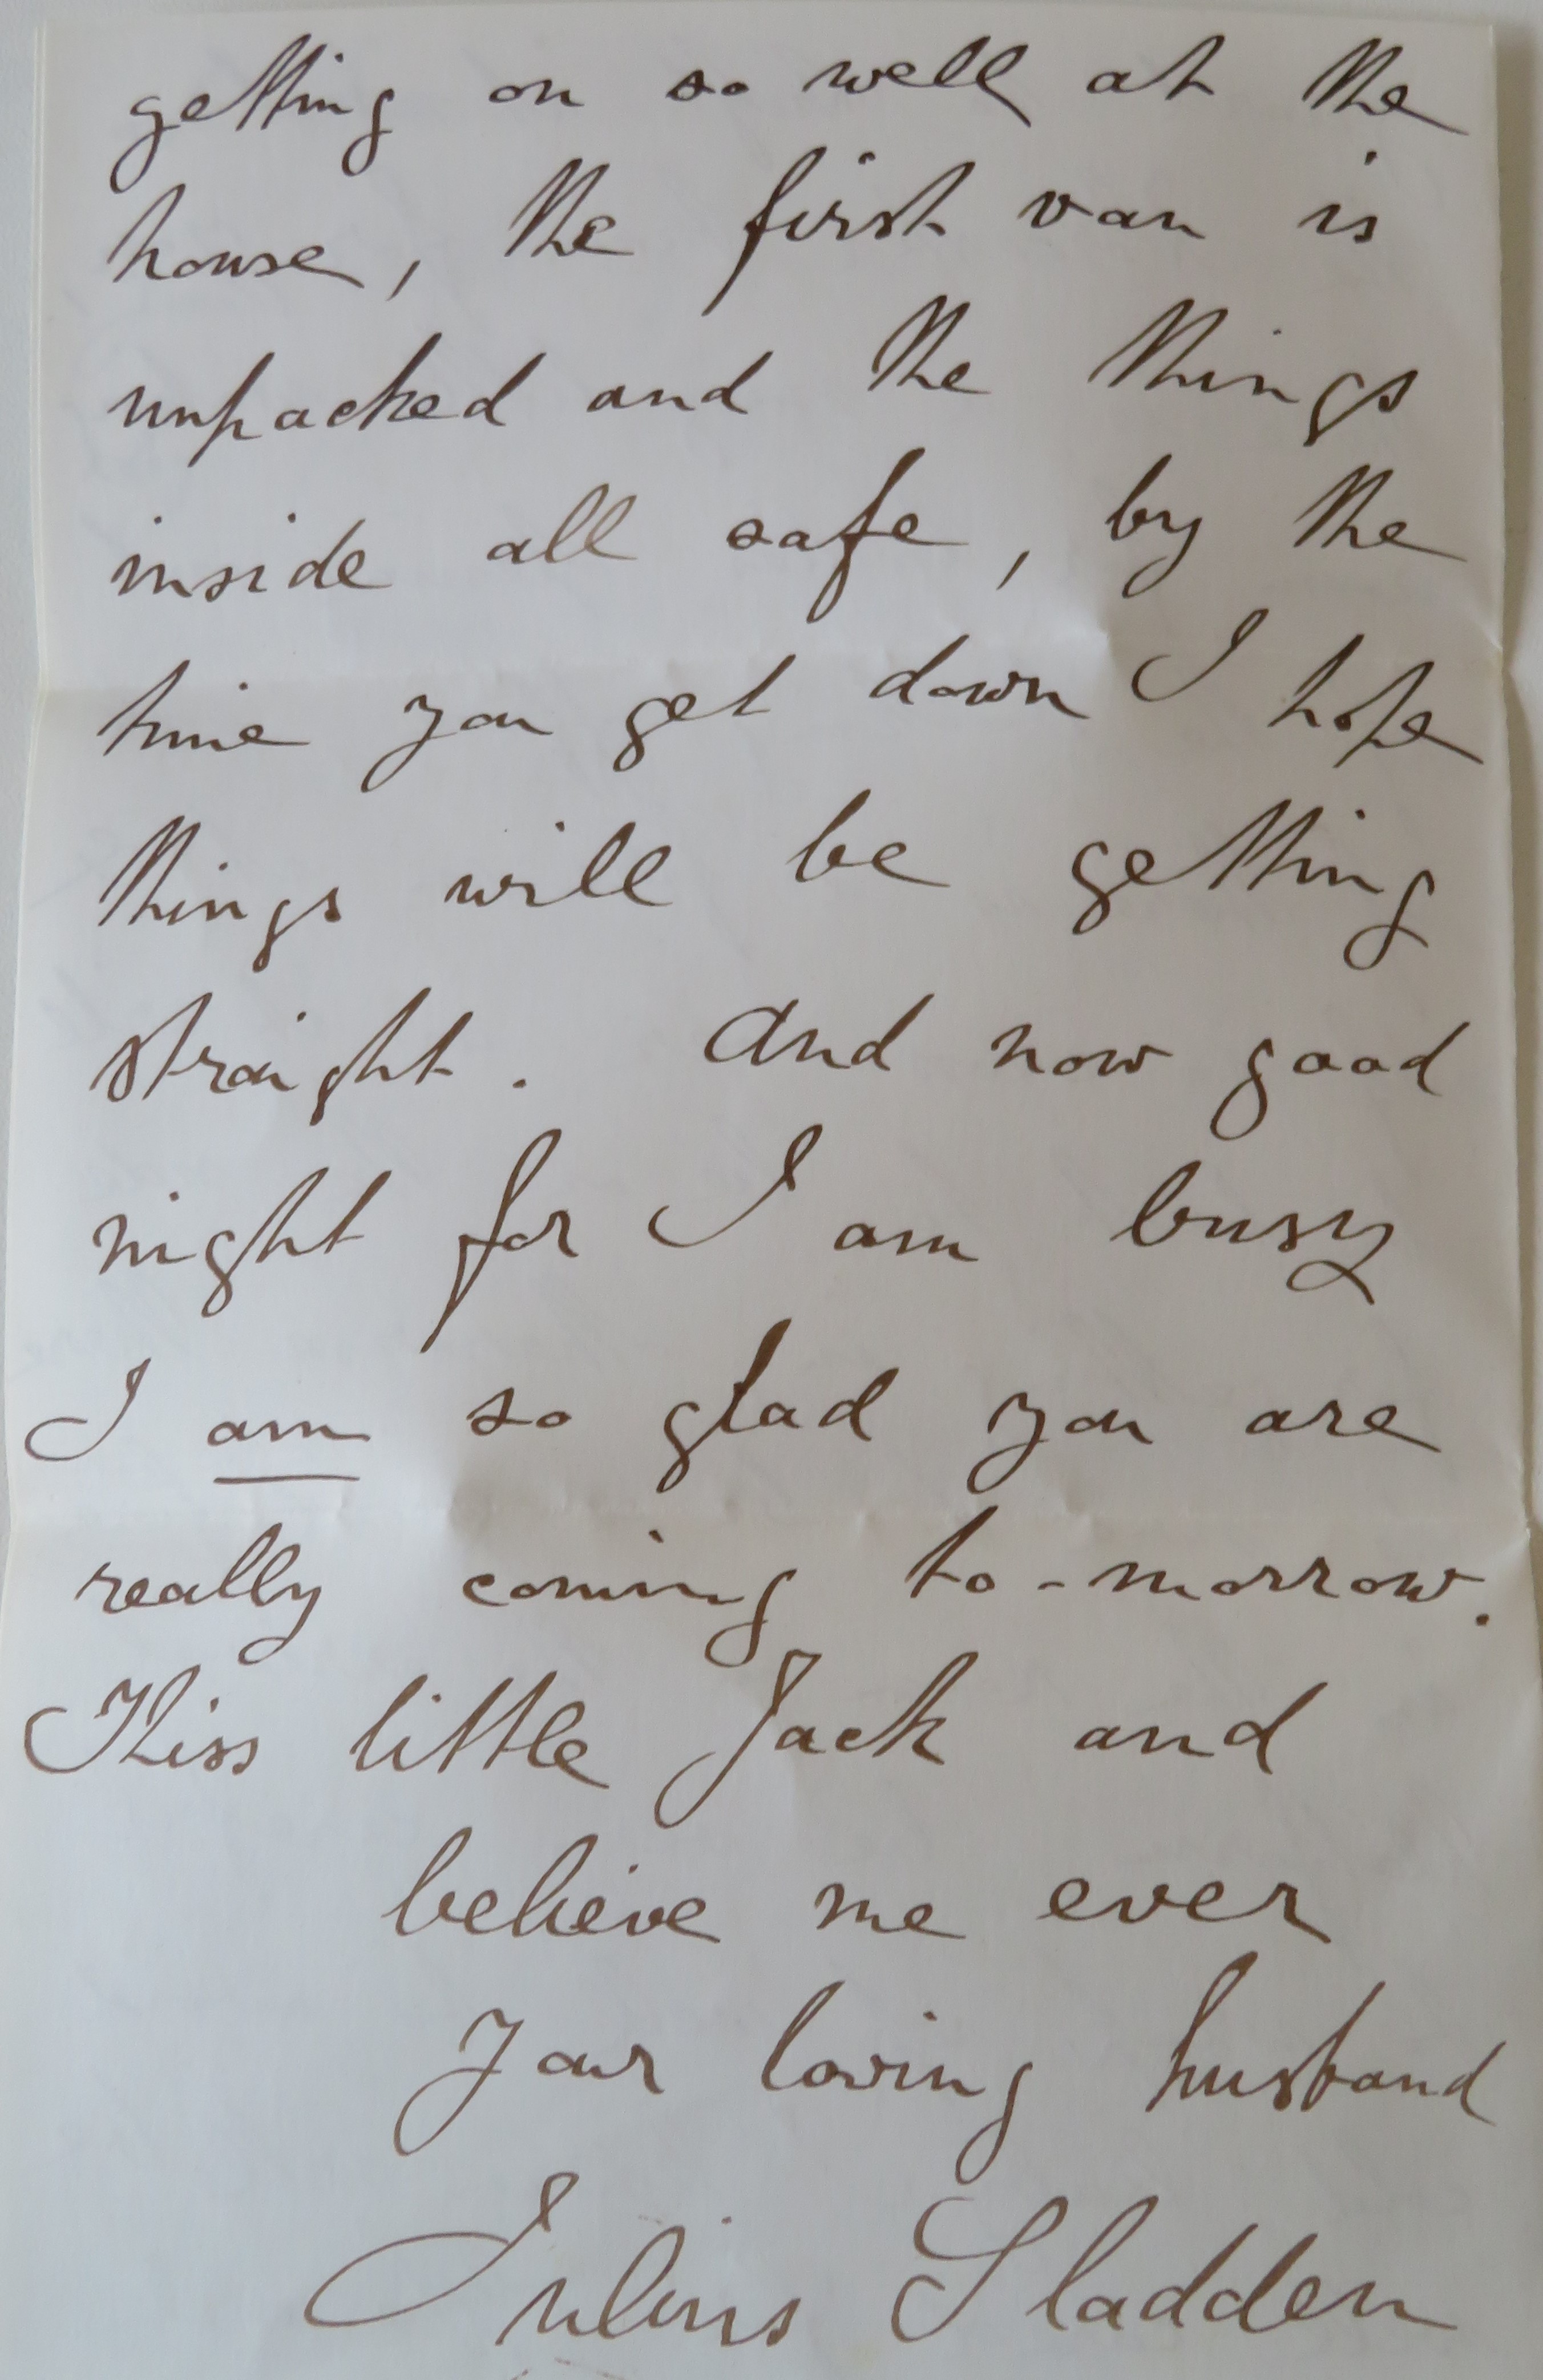 getting on so well at the
house, the first van is
unpacked and the things
inside all safe, by the
time you get down I hope
things will be getting
straight. And now good
night for I am busy
I am so glad you are
really coming to-morrow.
Kiss little Jack and
believe me ever
Your loving husband
Julius Sladden